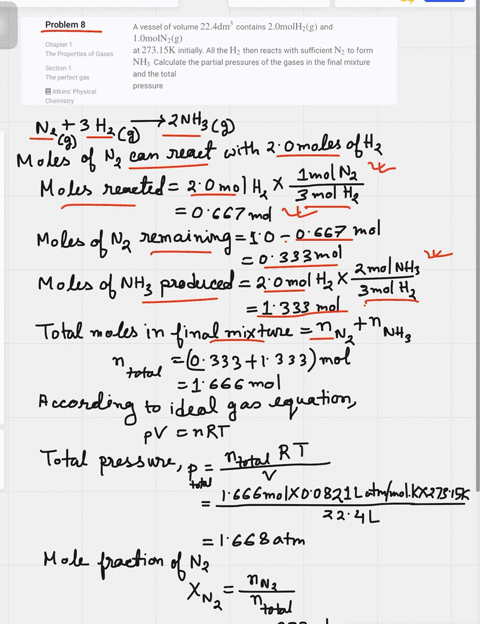 Problem 8
Chapter 1
The Properties of Gases
Section 1
The perfect gas
Atkins' Physical
Chemistry
A vessel of volume 22.4dm³ contains 2.0molH₂(g) and
1.0molN₂(g)
at 273.15K initially. All the H₂ then reacts with sufficient N₂ to form
NH₃ Calculate the partial pressures of the gases in the final mixture
and the total
pressure
N₂(g) + 3H₂(g) → 2NH₃(g)
Moles of N₂ can react with 2.0moles of H₂
Moles reacted = 2.0mol H₂ × 1mol N₂ / 3mol H₂
= 0.667mol
Moles of N₂ remaining = 1.0 - 0.667 mol
= 0.333mol
Moles of NH₃ produced = 2.0mol H₂ × 2mol NH₃ / 3mol H₂
= 1.333 mol
Total moles in final mixture = n N₂ + n NH₃
n total = (0.333+1.333) mol
= 1.666mol
According to ideal gas equation,
pV = nRT
Total pressure, p total = n total RT / V
= 1.666mol×0.0821L atm/mol.K×273.15K / 22.4L
= 1.668atm
Mole fraction of N₂
X N₂ = n N₂ / n total